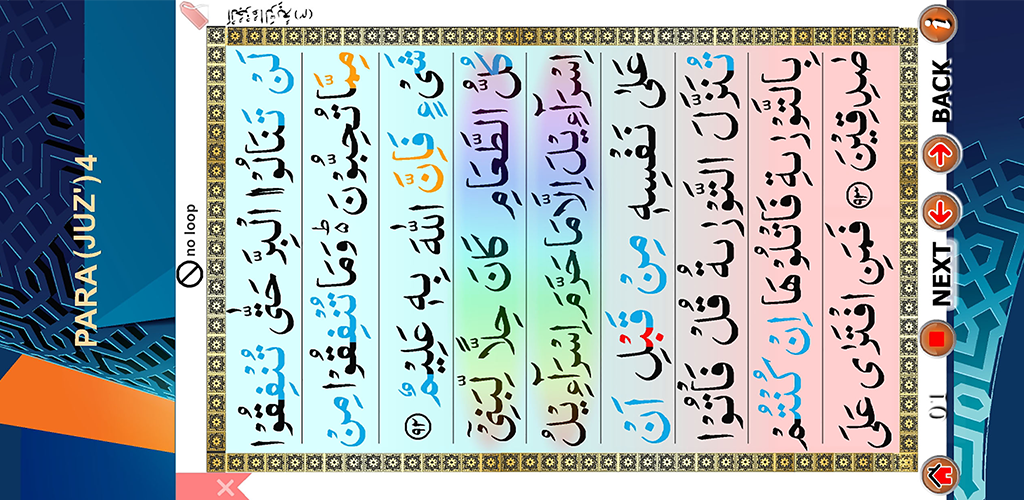 PARA (JUZ') 4
no loop
لَنْ تَنَالُوا الْبِرَّ حَتّٰى تُنْفِقُوْا
مِمَّا تُحِبُّوْنَ ؕ وَمَا تُنْفِقُوْا مِنْ
شَیْءٍ فَاِنَّ اللّٰهَ بِهٖ عَلِیْمٌ ۹۲
كُلُّ الطَّعَامِ كَانَ حِلًّا لِّبَنِیْۤ
اِسْرَآءِیْلَ اِلَّا مَا حَرَّمَ اِسْرَآءِیْلُ
عَلٰى نَفْسِهٖ مِنْ قَبْلِ اَنْ
تُنَزَّلَ التَّوْرٰىةُ قُلْ فَاْتُوْا
بِالتَّوْرٰىةِ فَاتْلُوْهَا اِنْ كُنْتُمْ
صٰدِقِیْنَ ۹۳ فَمَنِ افْتَرٰى عَلَى
01 NEXT BACK